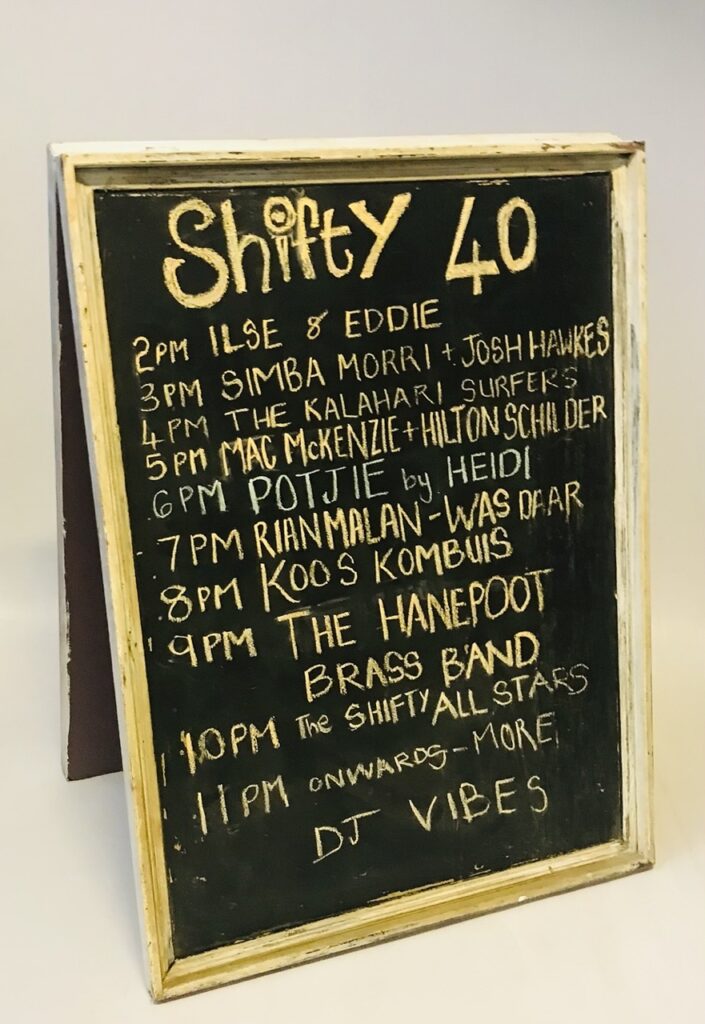 Shifty 40
2PM ILSE & EDDIE
3PM SIMBA MORRI + JOSH HAWKES
4PM THE KALAHARI SURFERS
5PM MAC McKENZIE + HILTON SCHILDER
6PM POTJIE by HEIDI
7PM RIAN MALAN - WAS DAAR
8PM KOOS KOMBUIS
9PM THE HANEPOOT
BRASS BAND
10PM The SHIFTY ALL STARS
11PM ONWARDS - MORE
DJ VIBES